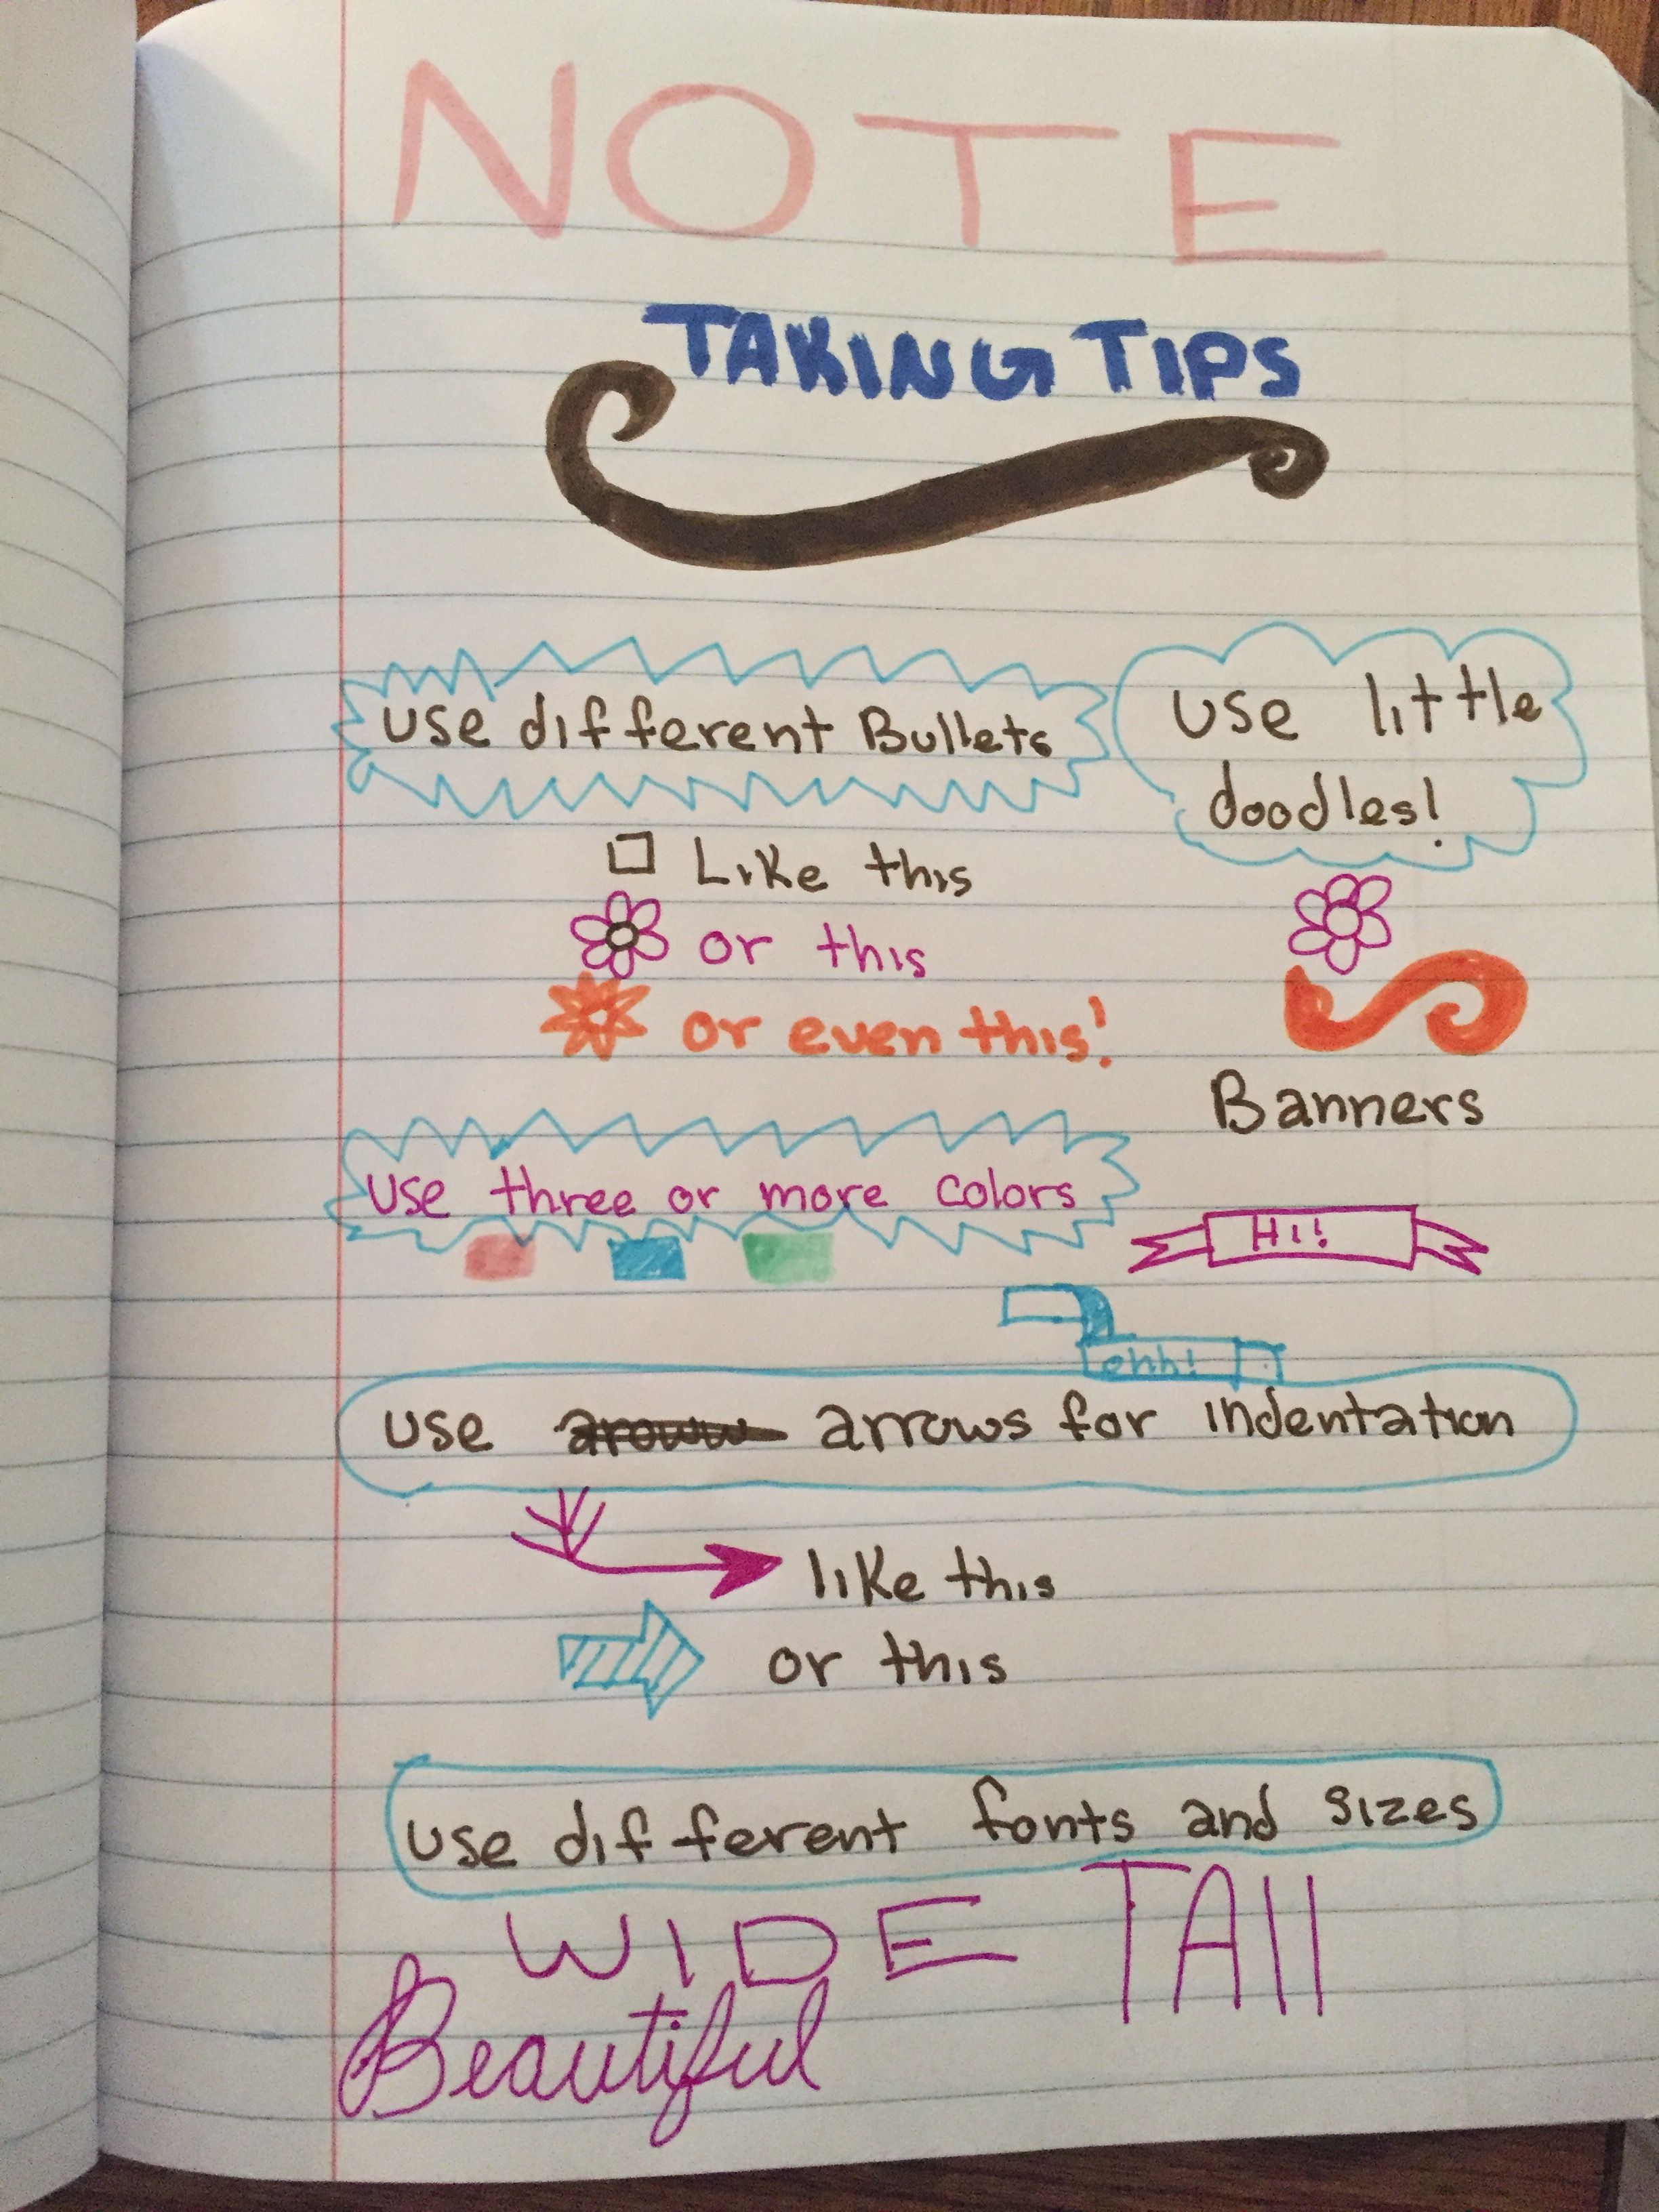 NOTE
TAKING TIPS
use different Bullets
use little
doodles!
Like this
or this
or even this!
Banners
use three or more colors
Hi!
ehh!
use aroww arrows for indentation
like this
or this
use different fonts and sizes
WIDE TAll
Beautiful